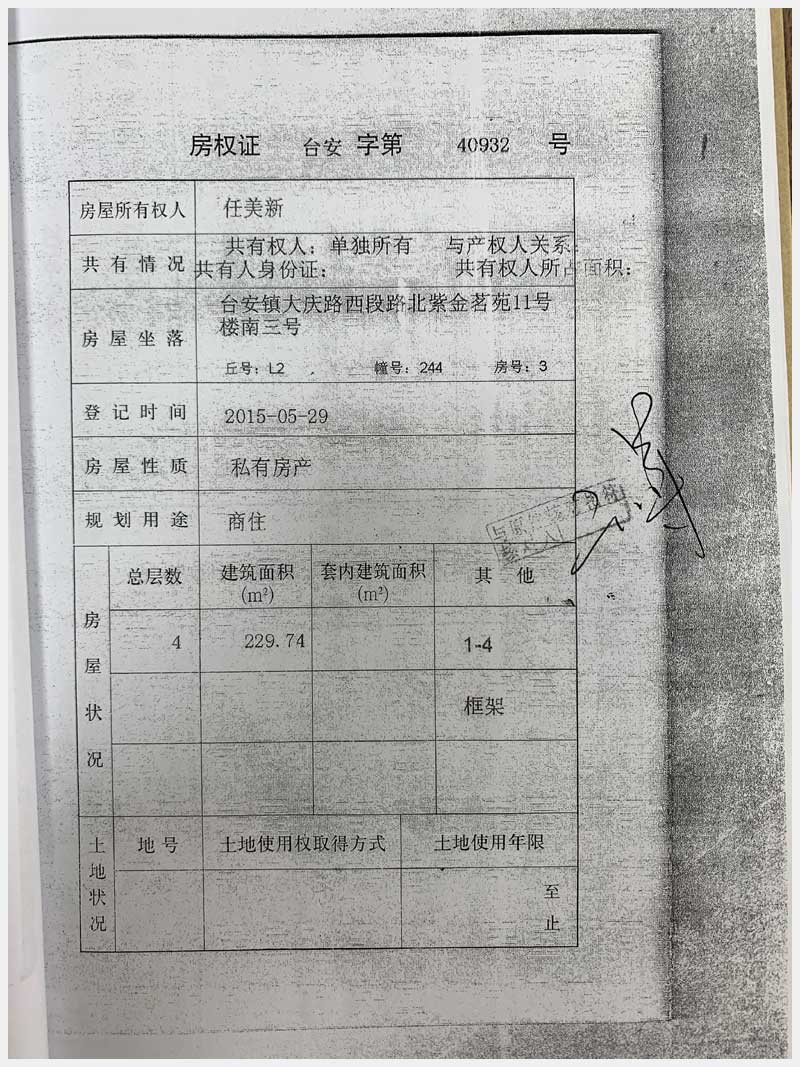 房权证 台安 字第 40932 号
房屋所有权人 任美新
共有情况 共有权人：单独所有 与产权人关系：
共有人身份证： 共有权人所占面积：
房屋坐落 台安镇大庆路西段路北紫金茗苑11号
楼南三号
丘号：L2 幢号：244 房号：3
登记时间 2015-05-29
房屋性质 私有房产
规划用途 商住
房屋状况
总层数 建筑面积(m²) 套内建筑面积(m²) 其他
4 229.74 1-4
框架
土地状况
地号 土地使用权取得方式 土地使用年限
至
止